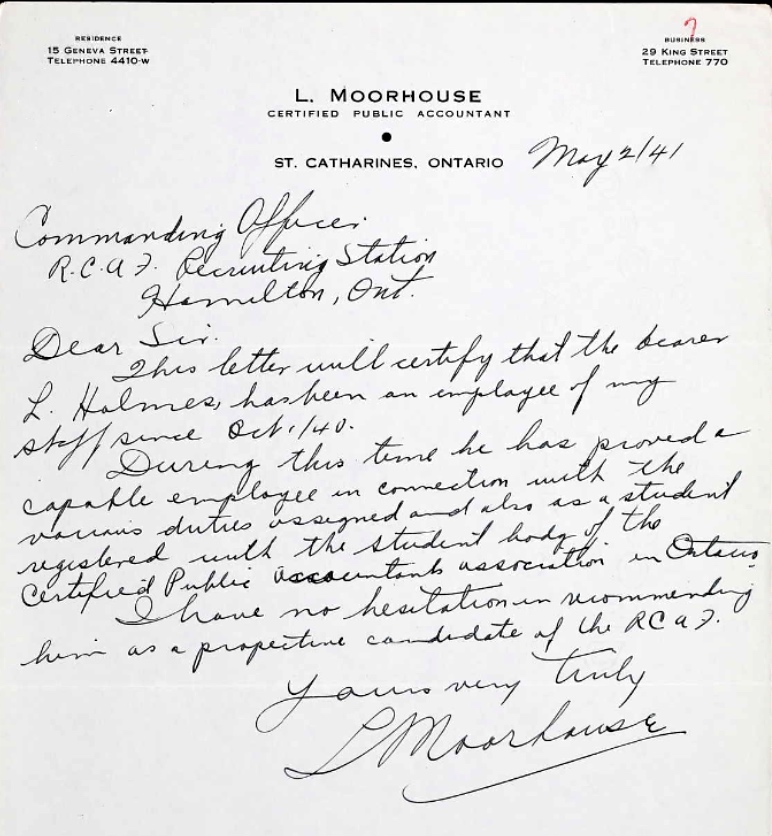 RESIDENCE
15 GENEVA STREET
TELEPHONE 4410-W
7
BUSINESS
29 KING STREET
TELEPHONE 770
L. MOORHOUSE
CERTIFIED PUBLIC ACCOUNTANT
ST. CATHARINES, ONTARIO
May 2/41
Commanding Officer
R.C.A.F. Recruiting Station
Hamilton, Ont.
Dear Sir.
This letter will certify that the bearer
L. Holmes, has been an employee of my
staff since Oct. 1/40.
During this time he has proved a
capable employee in connection with the
various duties assigned and also as a student
registered with the student body of the
Certified Public Accountants association in Ontario.
I have no hesitation in recommending
him as a propective candidate of the RCAF.
Yours very truly
L Moorhouse